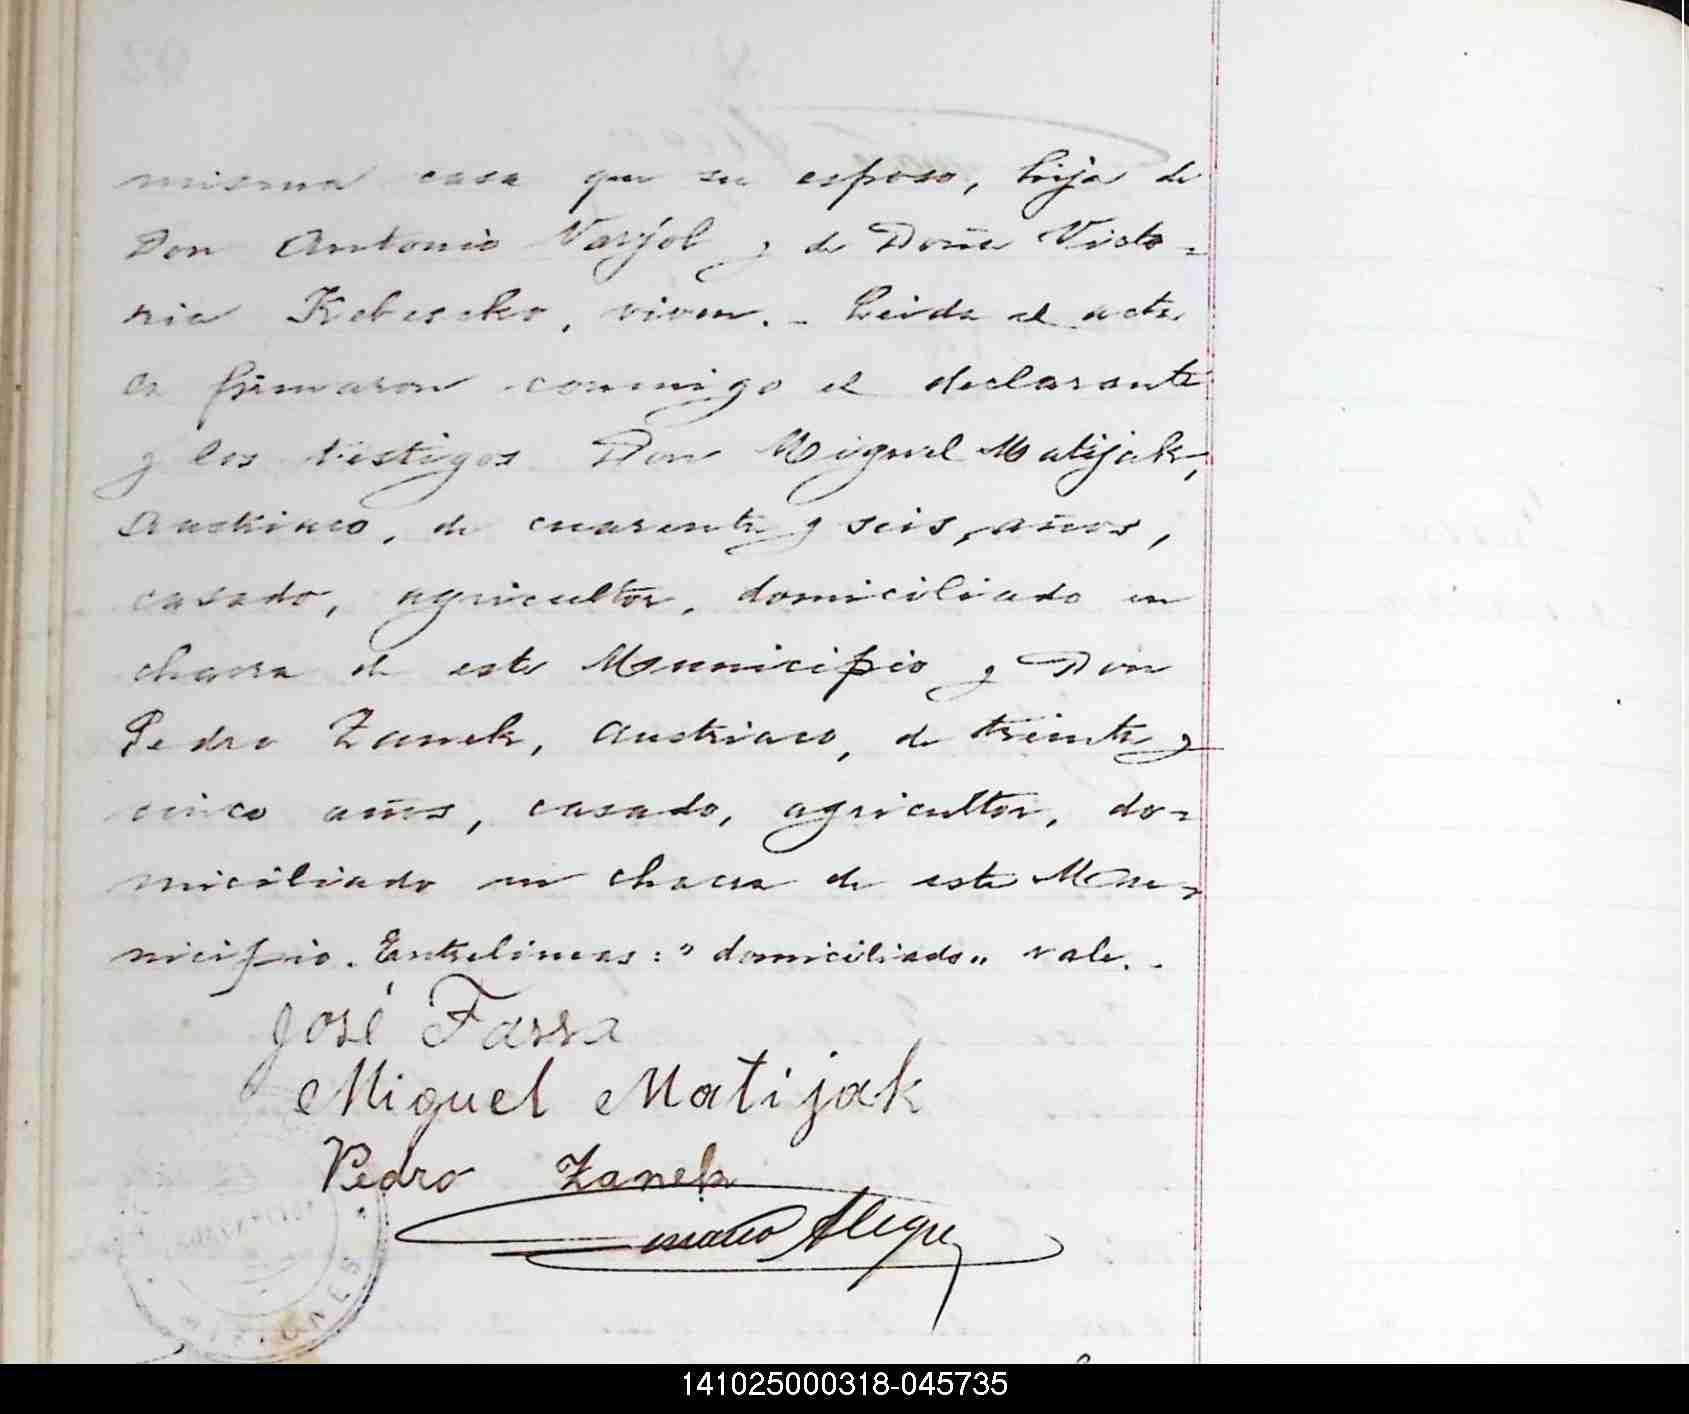 misma casa que su esposo, hija de
Don Antonio Varjol y de Doña Victo=
ria Kebescko, viven. - Leida el acta
la firmaron conmigo el declarante
y los testigos Don Miguel Matijak,
Austriaco, de cuarenta y seis años,
casado, agricultor, domiciliado en
chacra de este Municipio y Don
Pedro Zanek, Austriaco, de treinta y
cinco años, casado, agricultor, do=
miciliado en chacra de este Mu=
nicipio. Entrelineas: "domiciliado" vale. -
José Farra
Miguel Matijak
Pedro Zanek
Alegre
MISIONES
141025000318-045735